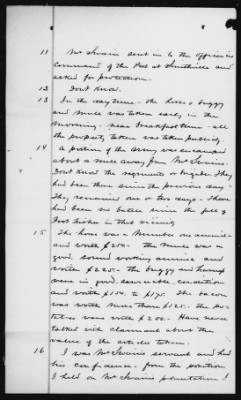 11 Mr Swain sent in to the officer in
command of the Post at Smithville and
asked for protection.
12 Dont Know.
13 In the day time - the horse & buggy
and mule was taken early in the
morning - near breakfast time - all
the property taken was taken publicly.
14 A portion of the army was encamped
about a mile away from Mr Swains.
Dont Know the regiments or brigade. They
had been there since the previous day -
They remained one or two days - There
had been no battle since the fall of
Fort Fisher in that vicinity
15 The horse was a number one animal -
and worth $200.- the mule was a
good sound working animal and
worth $225.- the buggy and harness
were in good, serviceable, condition
and worth $150, to $175. The bacon
was worth more than $120.- the po-
tatoes were worth $200.- Have never
talked with claimant about the
value of the articles taken.
16 I was Mr Swains servant and had
his confidence - from the position
I held on Mr Swains plantation I